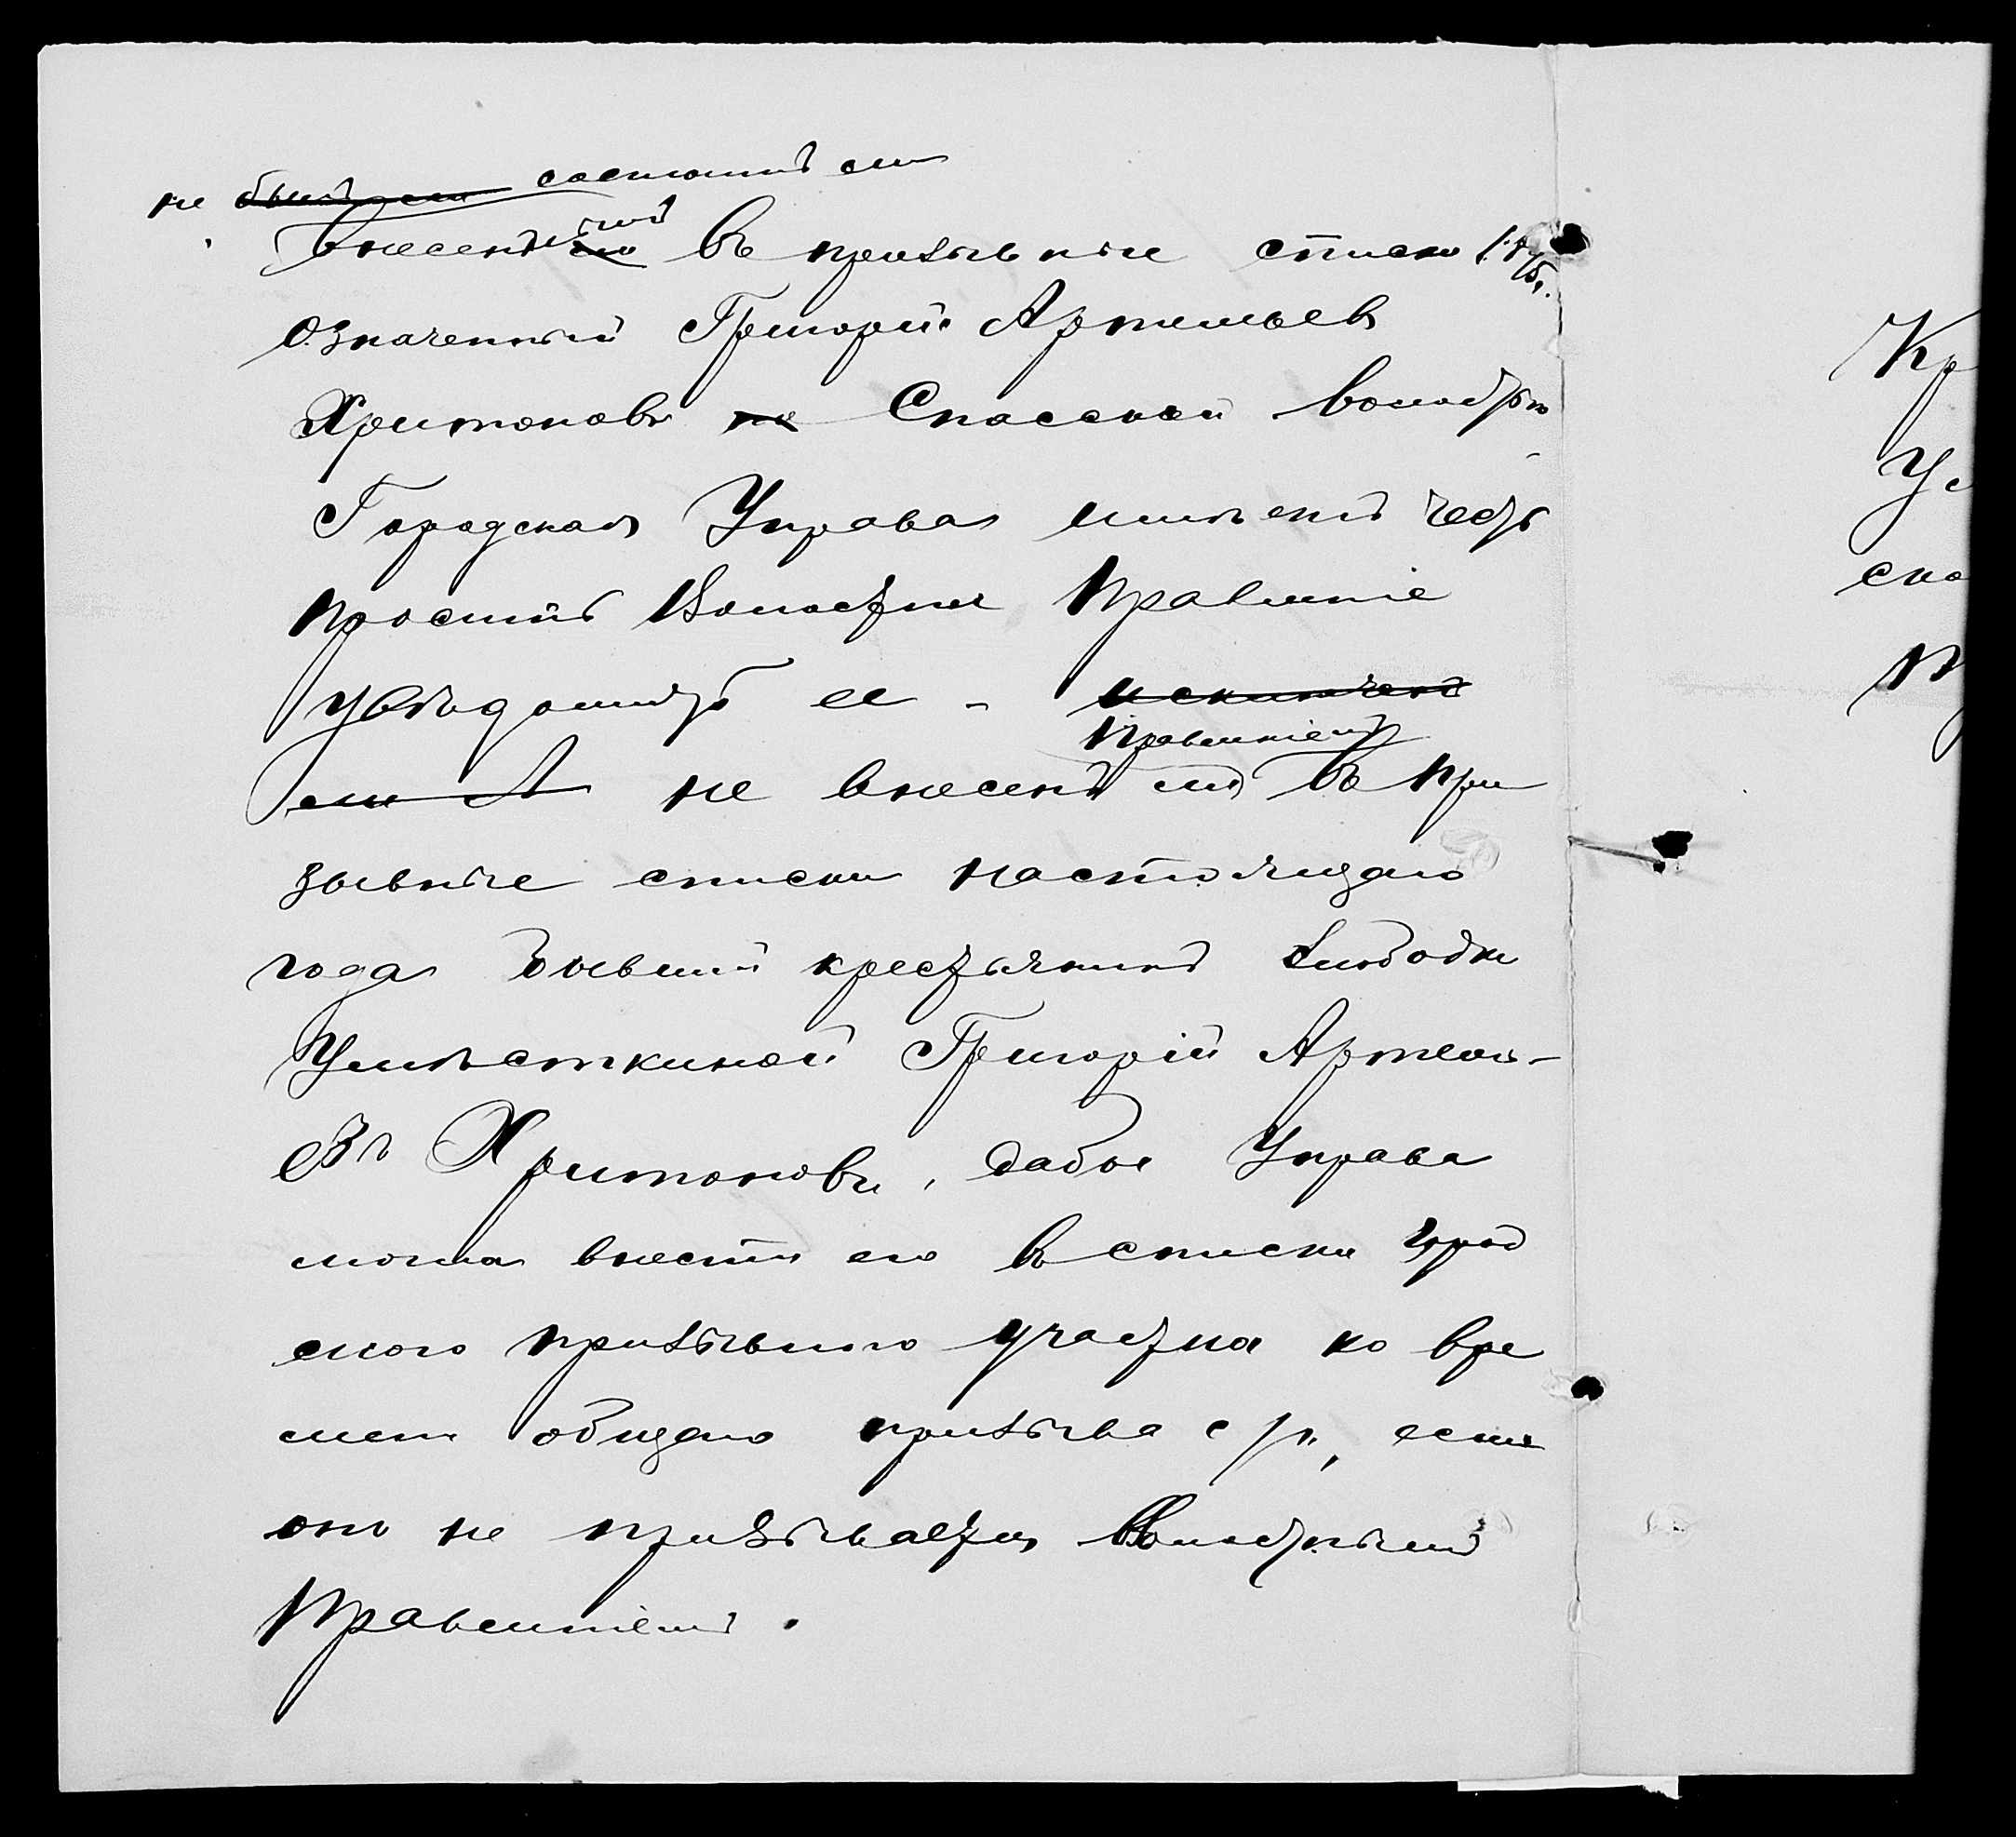 не былъ ли состоитъ ли
внесеннымъ въ призывные списки
означенный Григорій Артемьевъ
Хритоновъ по Спасской волости
Городская Управа имѣетъ честь
просить Волостное Правленіе
увѣдомить ее - исключенъ
Правленіемъ
ли А не внесенъ ли въ при
зывные списки настоящаго
года бывшій крестьянинъ Слободки
Григорій Артемь-
евъ Хритоновъ, дабы Управа
могла внести его въ списки город
ского призывного участка ко вре
мени общаго призыва с/г., если
онъ не призывается Волостнымъ
Правленіемъ.
Кр
Ус
ска